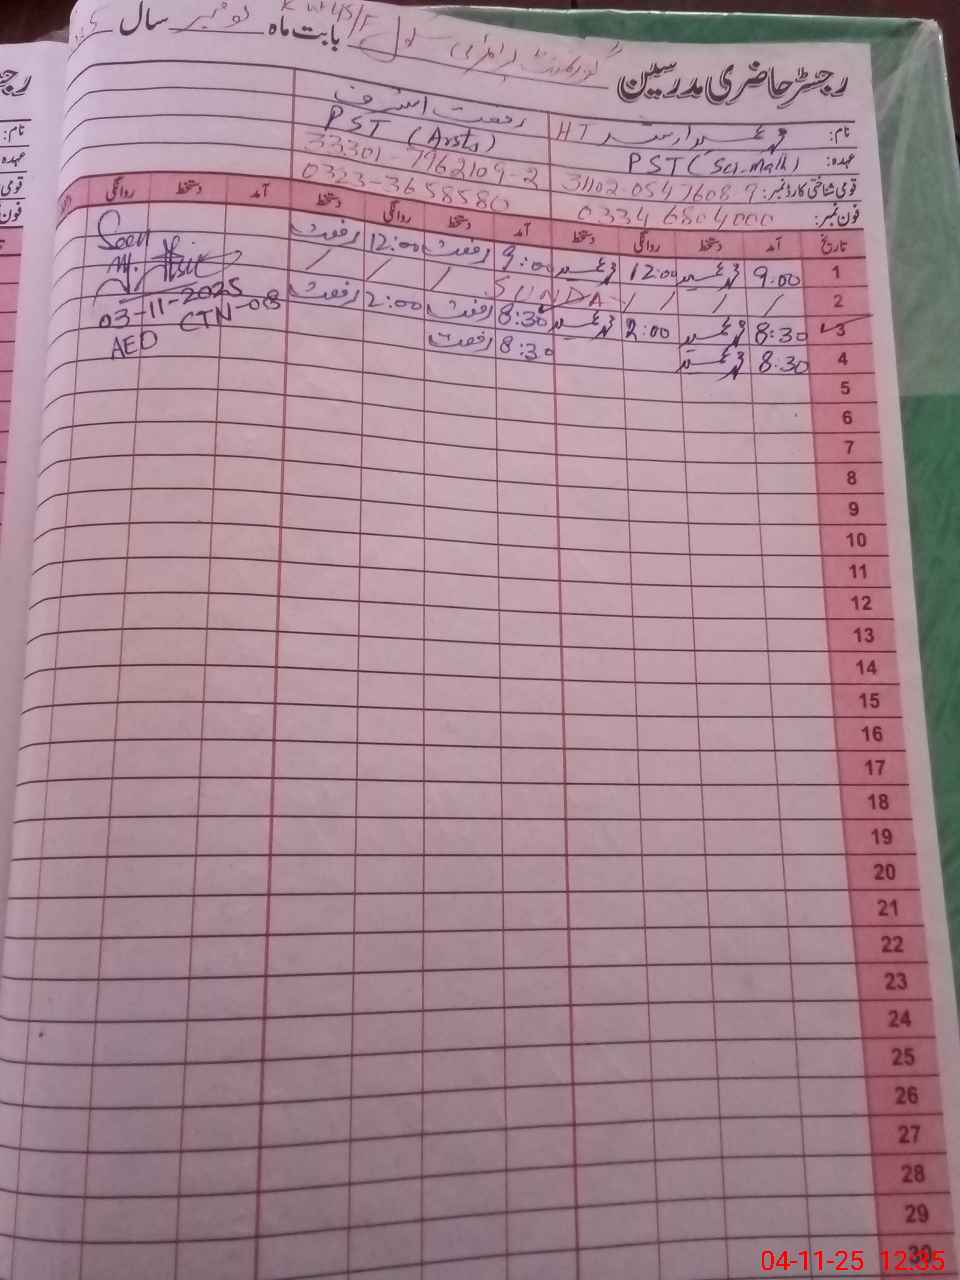 رجسٹر حاضری مدرسین گورنمنٹ پرائمری سکول بابت ماہ نومبر سال
نام: HT رفعت اشرف
عہدہ: PST (Sci-Math) PST (Arsts)
قومی شناختی کارڈ نمبر: 31102-0547608-9 33301-7962109-2
فون نمبر: 0334 6804000 0323-3658580
تاریخ آمد دستخط روانگی دستخط آمد دستخط روانگی دستخط آمد دستخط روانگی
1 9.00 12:00 9:00 رفعت 12:00 رفعت
2 / / / / SUNDA / / /
3 8:30 2:00 8:30 رفعت 2:00 رفعت
4 8:30 8:30 رفعت
Seen
03-11-2025
CTN-08
AEO
5
6
7
8
9
10
11
12
13
14
15
16
17
18
19
20
21
22
23
24
25
26
27
28
29
30
04-11-25 12:35